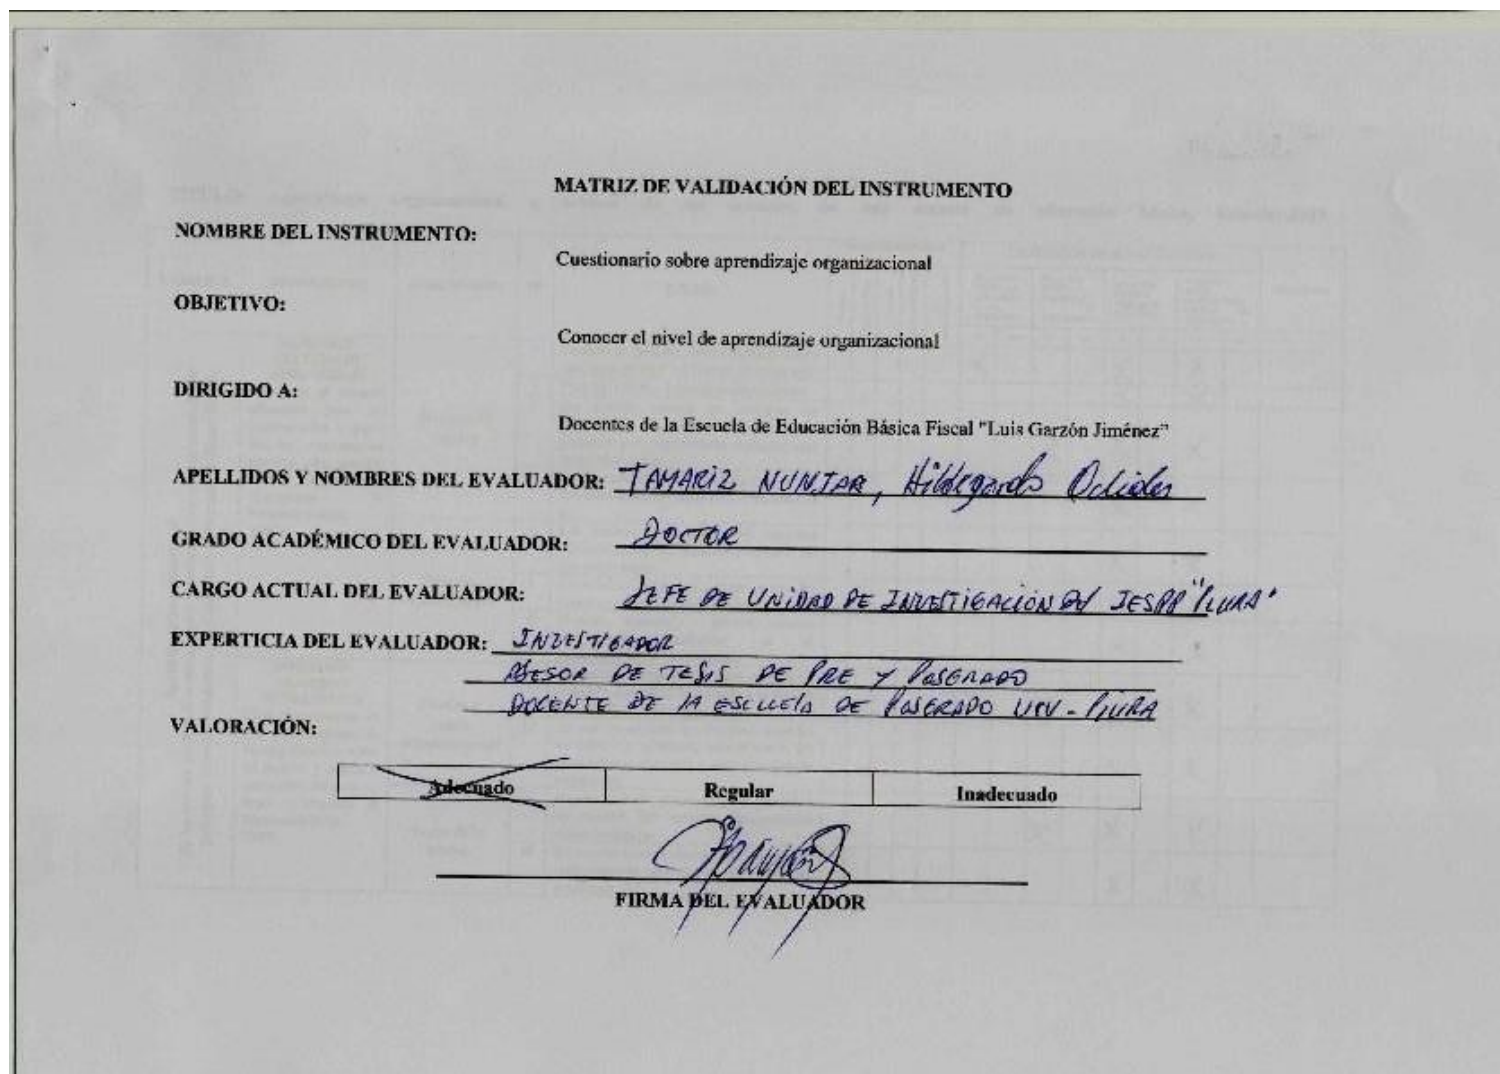 MATRIZ DE VALIDACIÓN DEL INSTRUMENTO
NOMBRE DEL INSTRUMENTO:
Cuestionario sobre aprendizaje organizacional
OBJETIVO:
Conocer el nivel de aprendizaje organizacional
DIRIGIDO A:
Docentes de la Escuela de Educación Básica Fiscal "Luis Garzón Jiménez"
APELLIDOS Y NOMBRES DEL EVALUADOR: TAMARIZ NUNJAR, Hildegardo
GRADO ACADÉMICO DEL EVALUADOR: DOCTOR
CARGO ACTUAL DEL EVALUADOR: JEFE DE UNIDAD DE INVESTIGACIÓN DEL IESPP "PIURA"
EXPERTICIA DEL EVALUADOR: INVESTIGADOR
ASESOR DE TESIS DE PRE Y POSGRADO
DOCENTE DE LA ESCUELA DE POSGRADO UCV - PIURA
VALORACIÓN:
Adecuado Regular Inadecuado
FIRMA DEL EVALUADOR